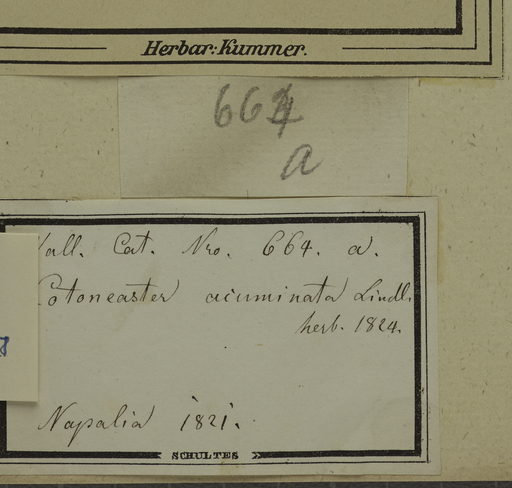 Herbar: Kummer.
664
a
Wall. Cat. Nro. 664. a.
Cotoneaster acuminata Lindl.
herb. 1824.
Napalia 1821.
SCHULTES